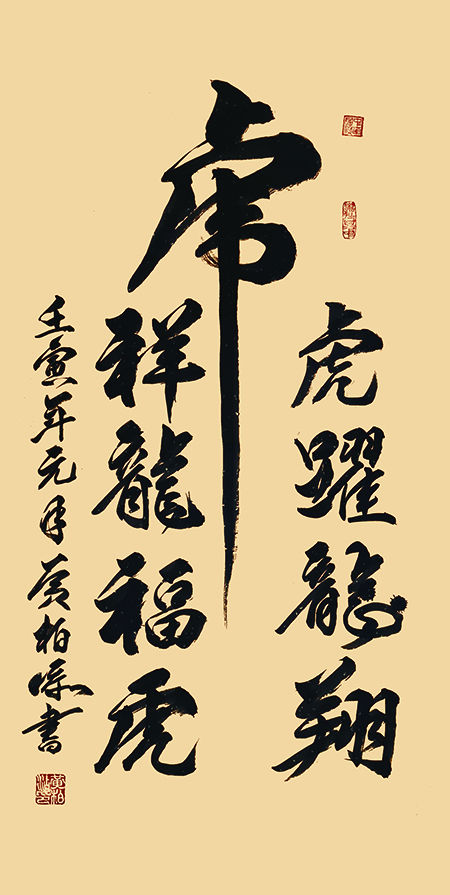 虎躍龍翔
虎
祥龍福虎
壬寅年元月黄柏書